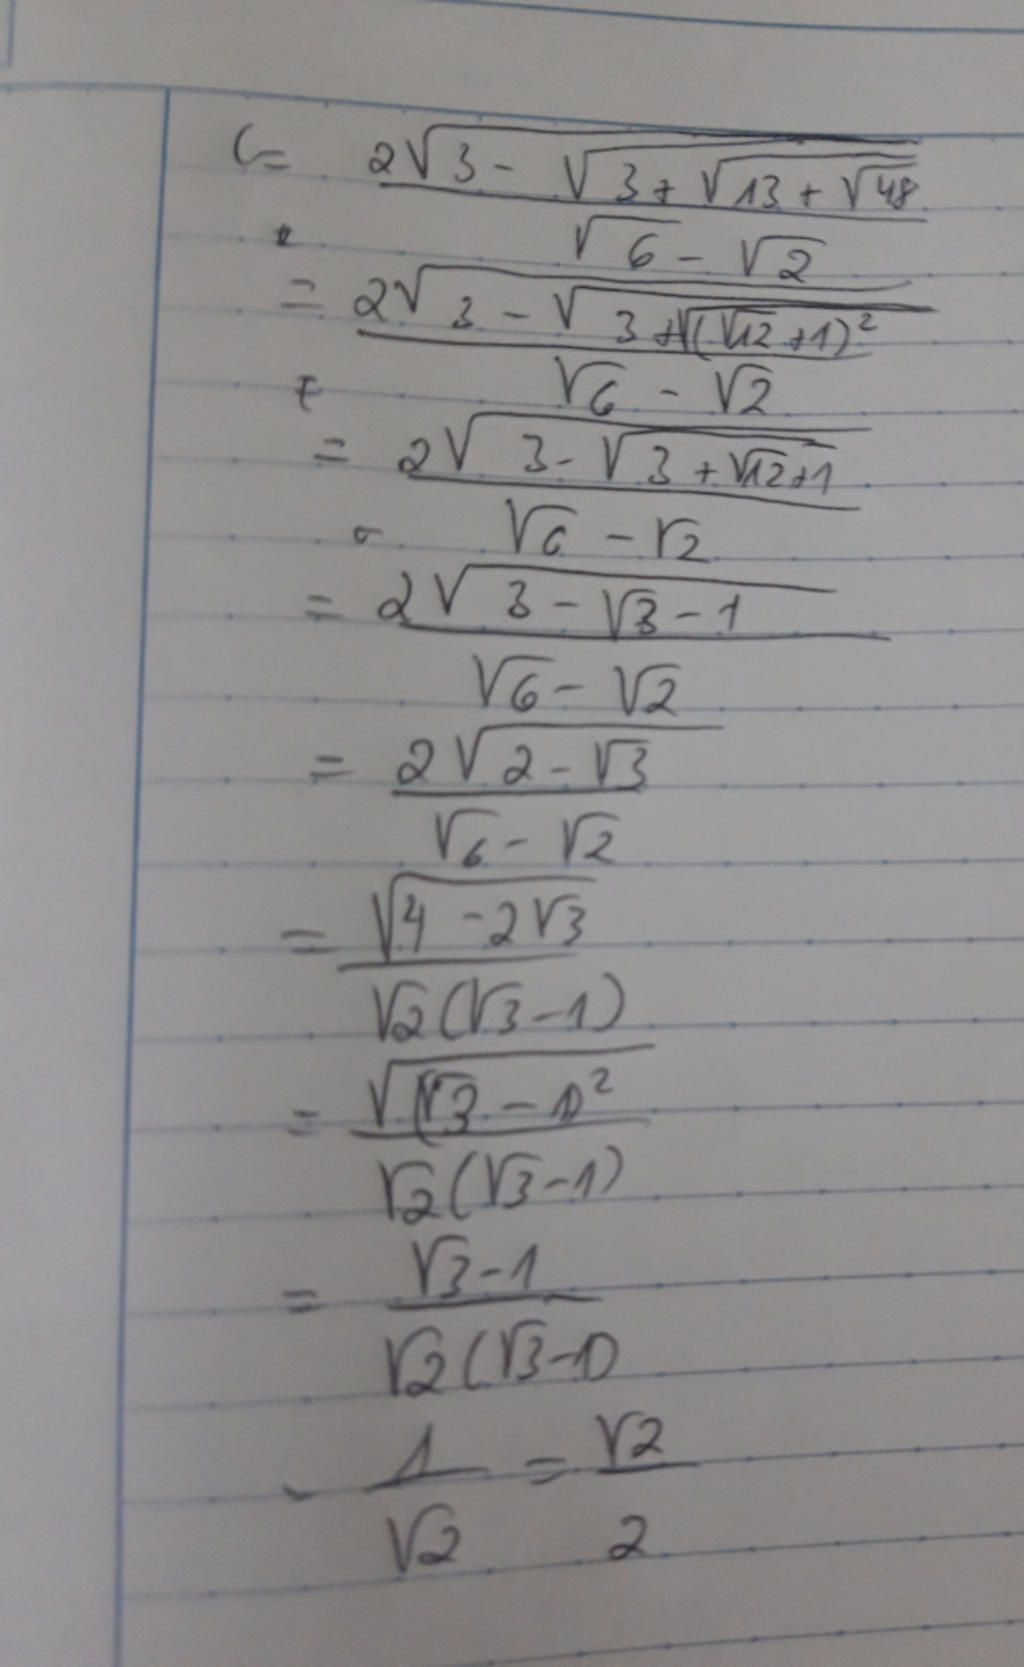 C = 2√(3 - √(3 + √(13 + √48)))
√6 - √2
= 2√(3 - √(3 + √((√12 + 1)²)))
√6 - √2
= 2√(3 - √(3 + √12 + 1))
√6 - √2
= 2√(3 - √3 - 1)
√6 - √2
= 2√(2 - √3)
√6 - √2
= √(4 - 2√3)
√2(√3 - 1)
= √((√3 - 1)²)
√2(√3 - 1)
= √3 - 1
√2(√3 - 1)
1 = √2
√2 2